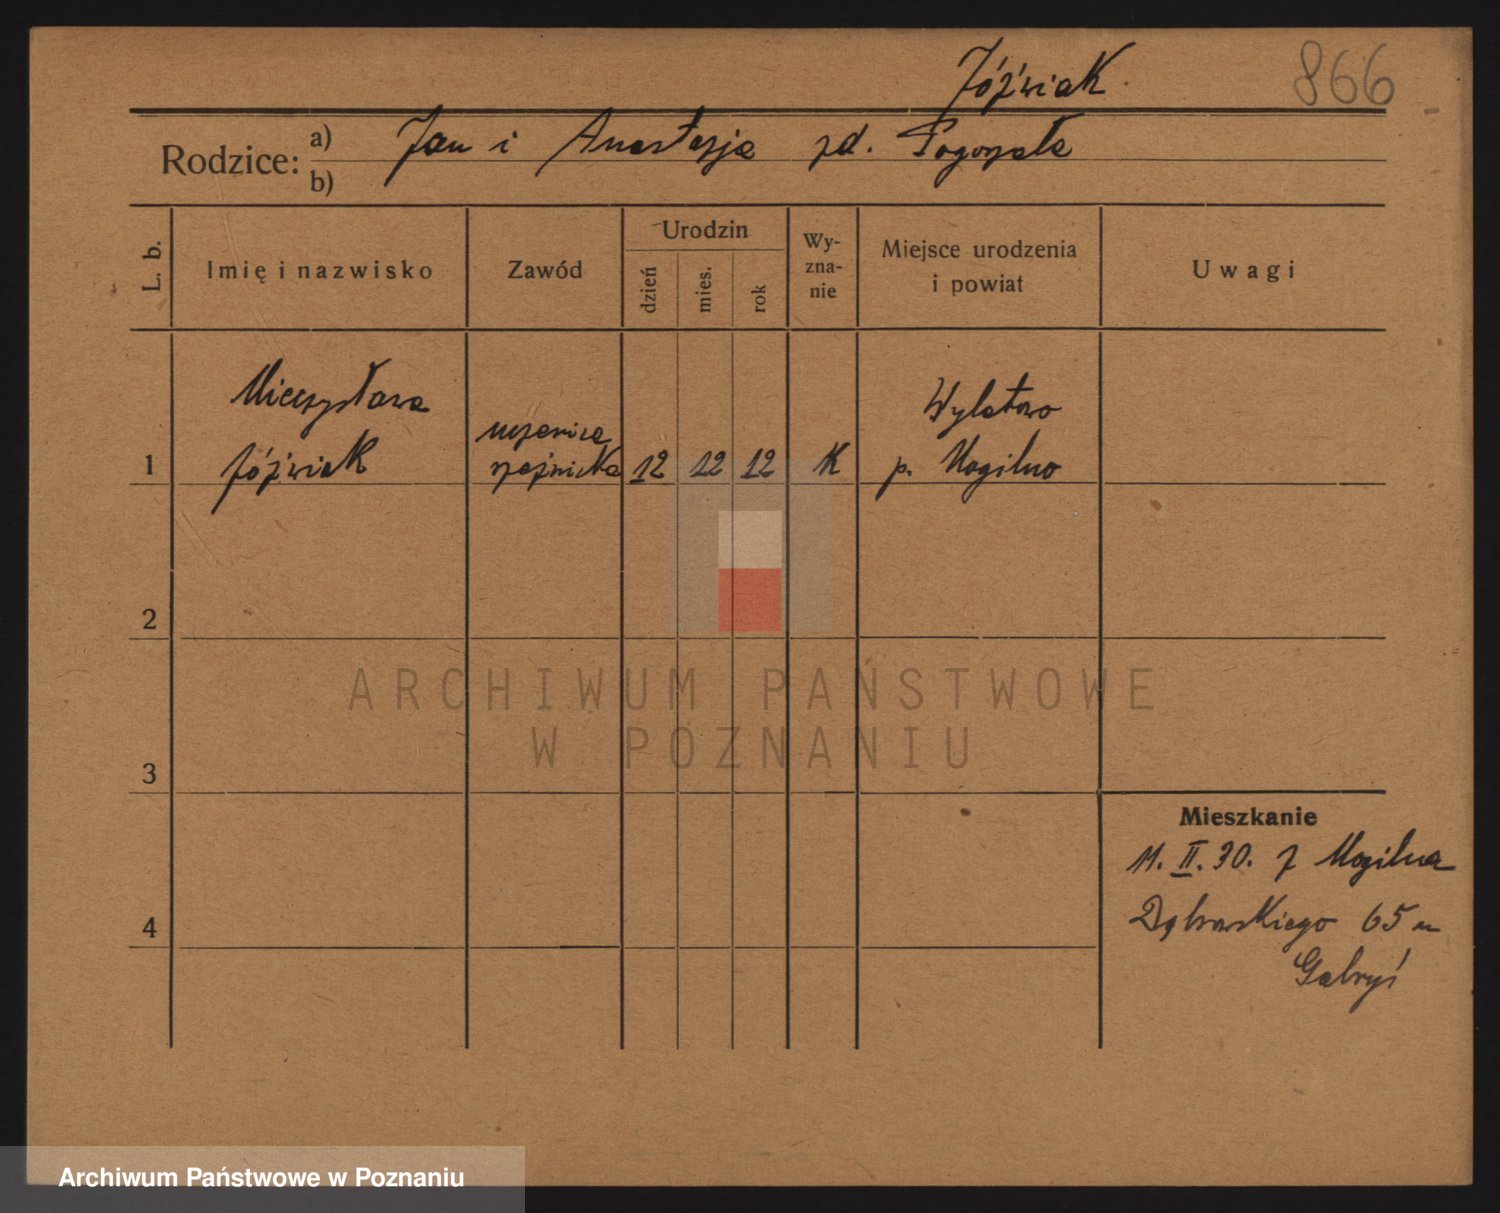 Jóźwiak
866
Rodzice:
a) Jan i Anastazja zd. Pogorzała
b)
L. b.
Imię i nazwisko
Zawód
Urodzin
dzień
mies.
rok
Wy-
zna-
nie
Miejsce urodzenia
i powiat
Uwagi
Mieczysława
Jóźwiak
uczenica
12
12
12
K
Wylatowo
p. Mogilno
1
2
3
4
Mieszkanie
11. II. 30. z Mogilna
Dąbrowskiego 65
Gabryś
ARCHIWUM PAŃSTWOWE
W POZNANIU
Archiwum Państwowe w Poznaniu